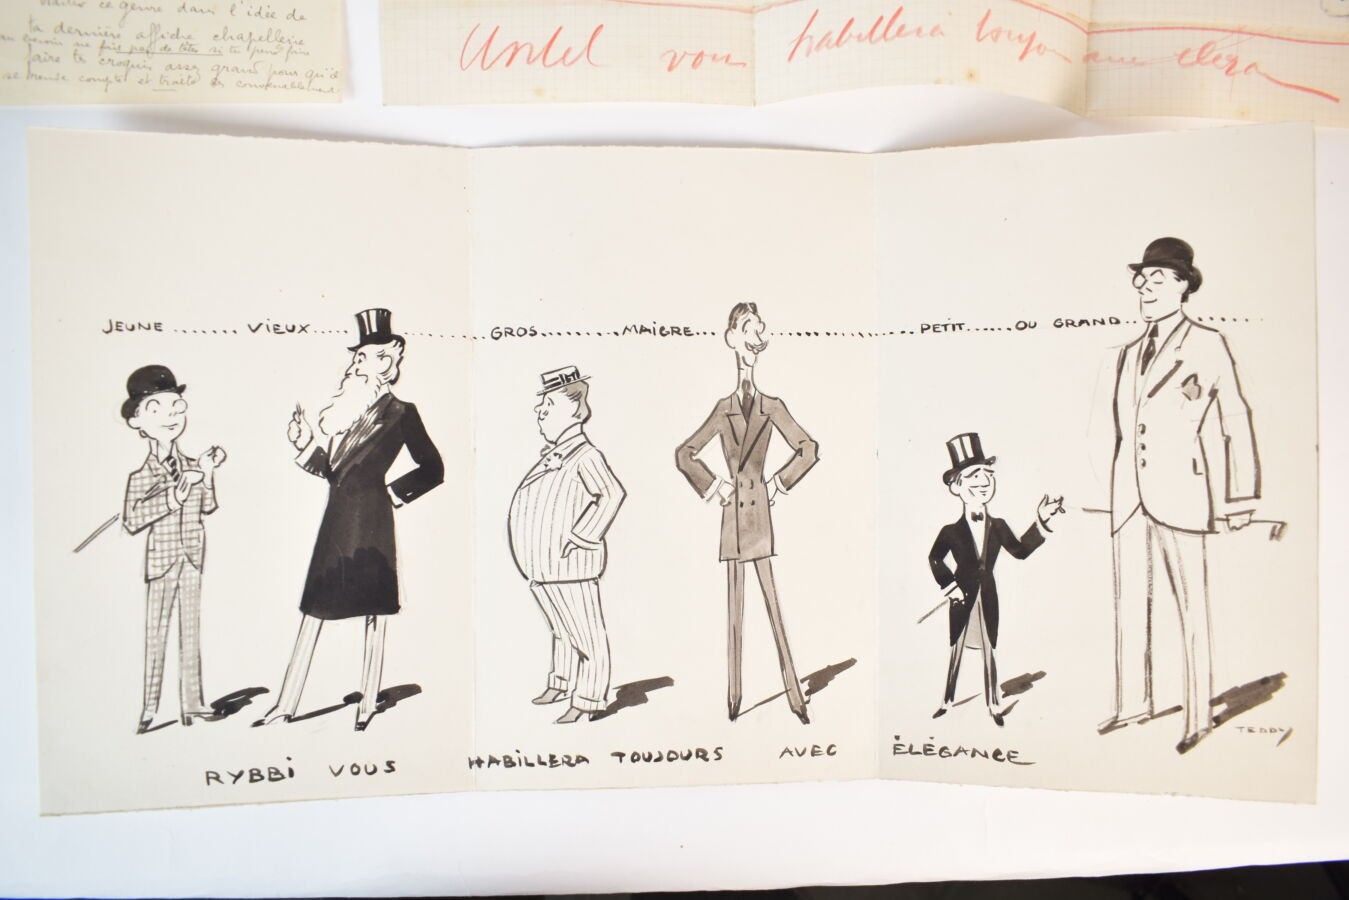 ce genre dans l'idée de
ta dernière affiche chapellerie
ne fais pas de têtes si tu peux faire
faire tes croquis assez grand pour qu'il
se rende compte et traite les convenablement
vous habillera toujours avec
JEUNE ....... VIEUX.................... GROS........MAIGRE.....................PETIT......OU GRAND............
RYBBI VOUS HABILLERA TOUJOURS AVEC ÉLÉGANCE
TEDDY